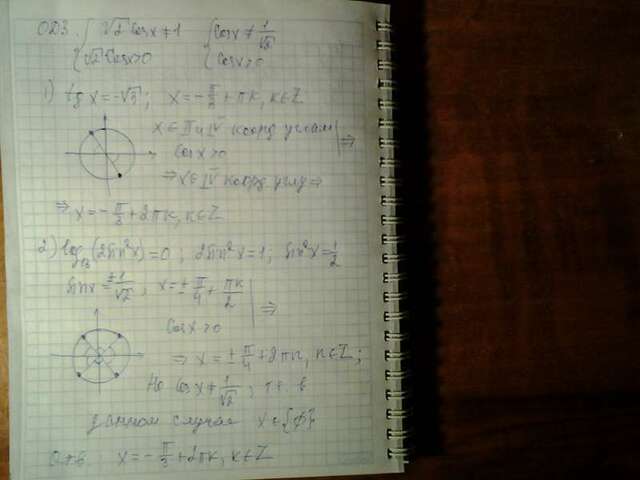 ОДЗ. { √2 cos x ≠ 1 { cos x ≠ 1/√2
{ √2 cos x > 0 { cos x > 0
1) tg x = -√3; x = -π/3 + πk, k∈Z
x ∈ II и IV коорд углам
cos x > 0 ⇒
⇒ x ∈ IV коорд углу ⇒
⇒ x = -π/3 + 2πk, k∈Z
2) log (2sin²x) = 0; 2sin²x = 1; sin²x = 1/2
sin x = ±1/√2; x = ± π/4 + πk/2
cos x > 0 ⇒
⇒ x = ± π/4 + 2πk, k∈Z;
Но cos x ≠ 1/√2, т.е. в
данном случае x ∈ {∅}
Отв. x = -π/3 + 2πk, k∈Z